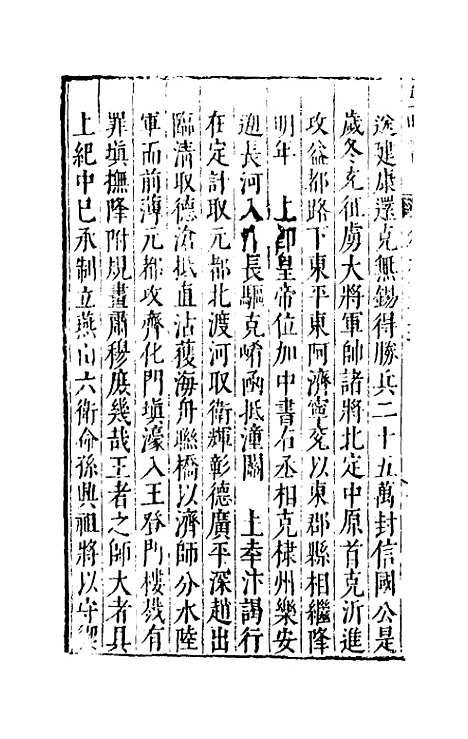 送建康還克無錫得勝兵二十五萬封信國公是
歲冬充征虜大將軍帥諸將北定中原首克沂進
攻益都路下東平東阿濟寧兗以東郡縣相繼降
明年　上卽皇帝位加中書右丞相克棣州樂安
迎長河入汴長驅克崤函抵潼關　上幸汴謁行
在定計取元都北渡河取衛輝彰德廣平深趙出
臨清取德滄抵直沽獲海舟聯橋以濟師分水陸
軍而前薄元都攻齊化門塡濠入王登門樓戮有
罪塡撫降附規畫肅穆庶幾哉王者之師大者具
上紀中已承制立燕山六衛命孫興祖將以守